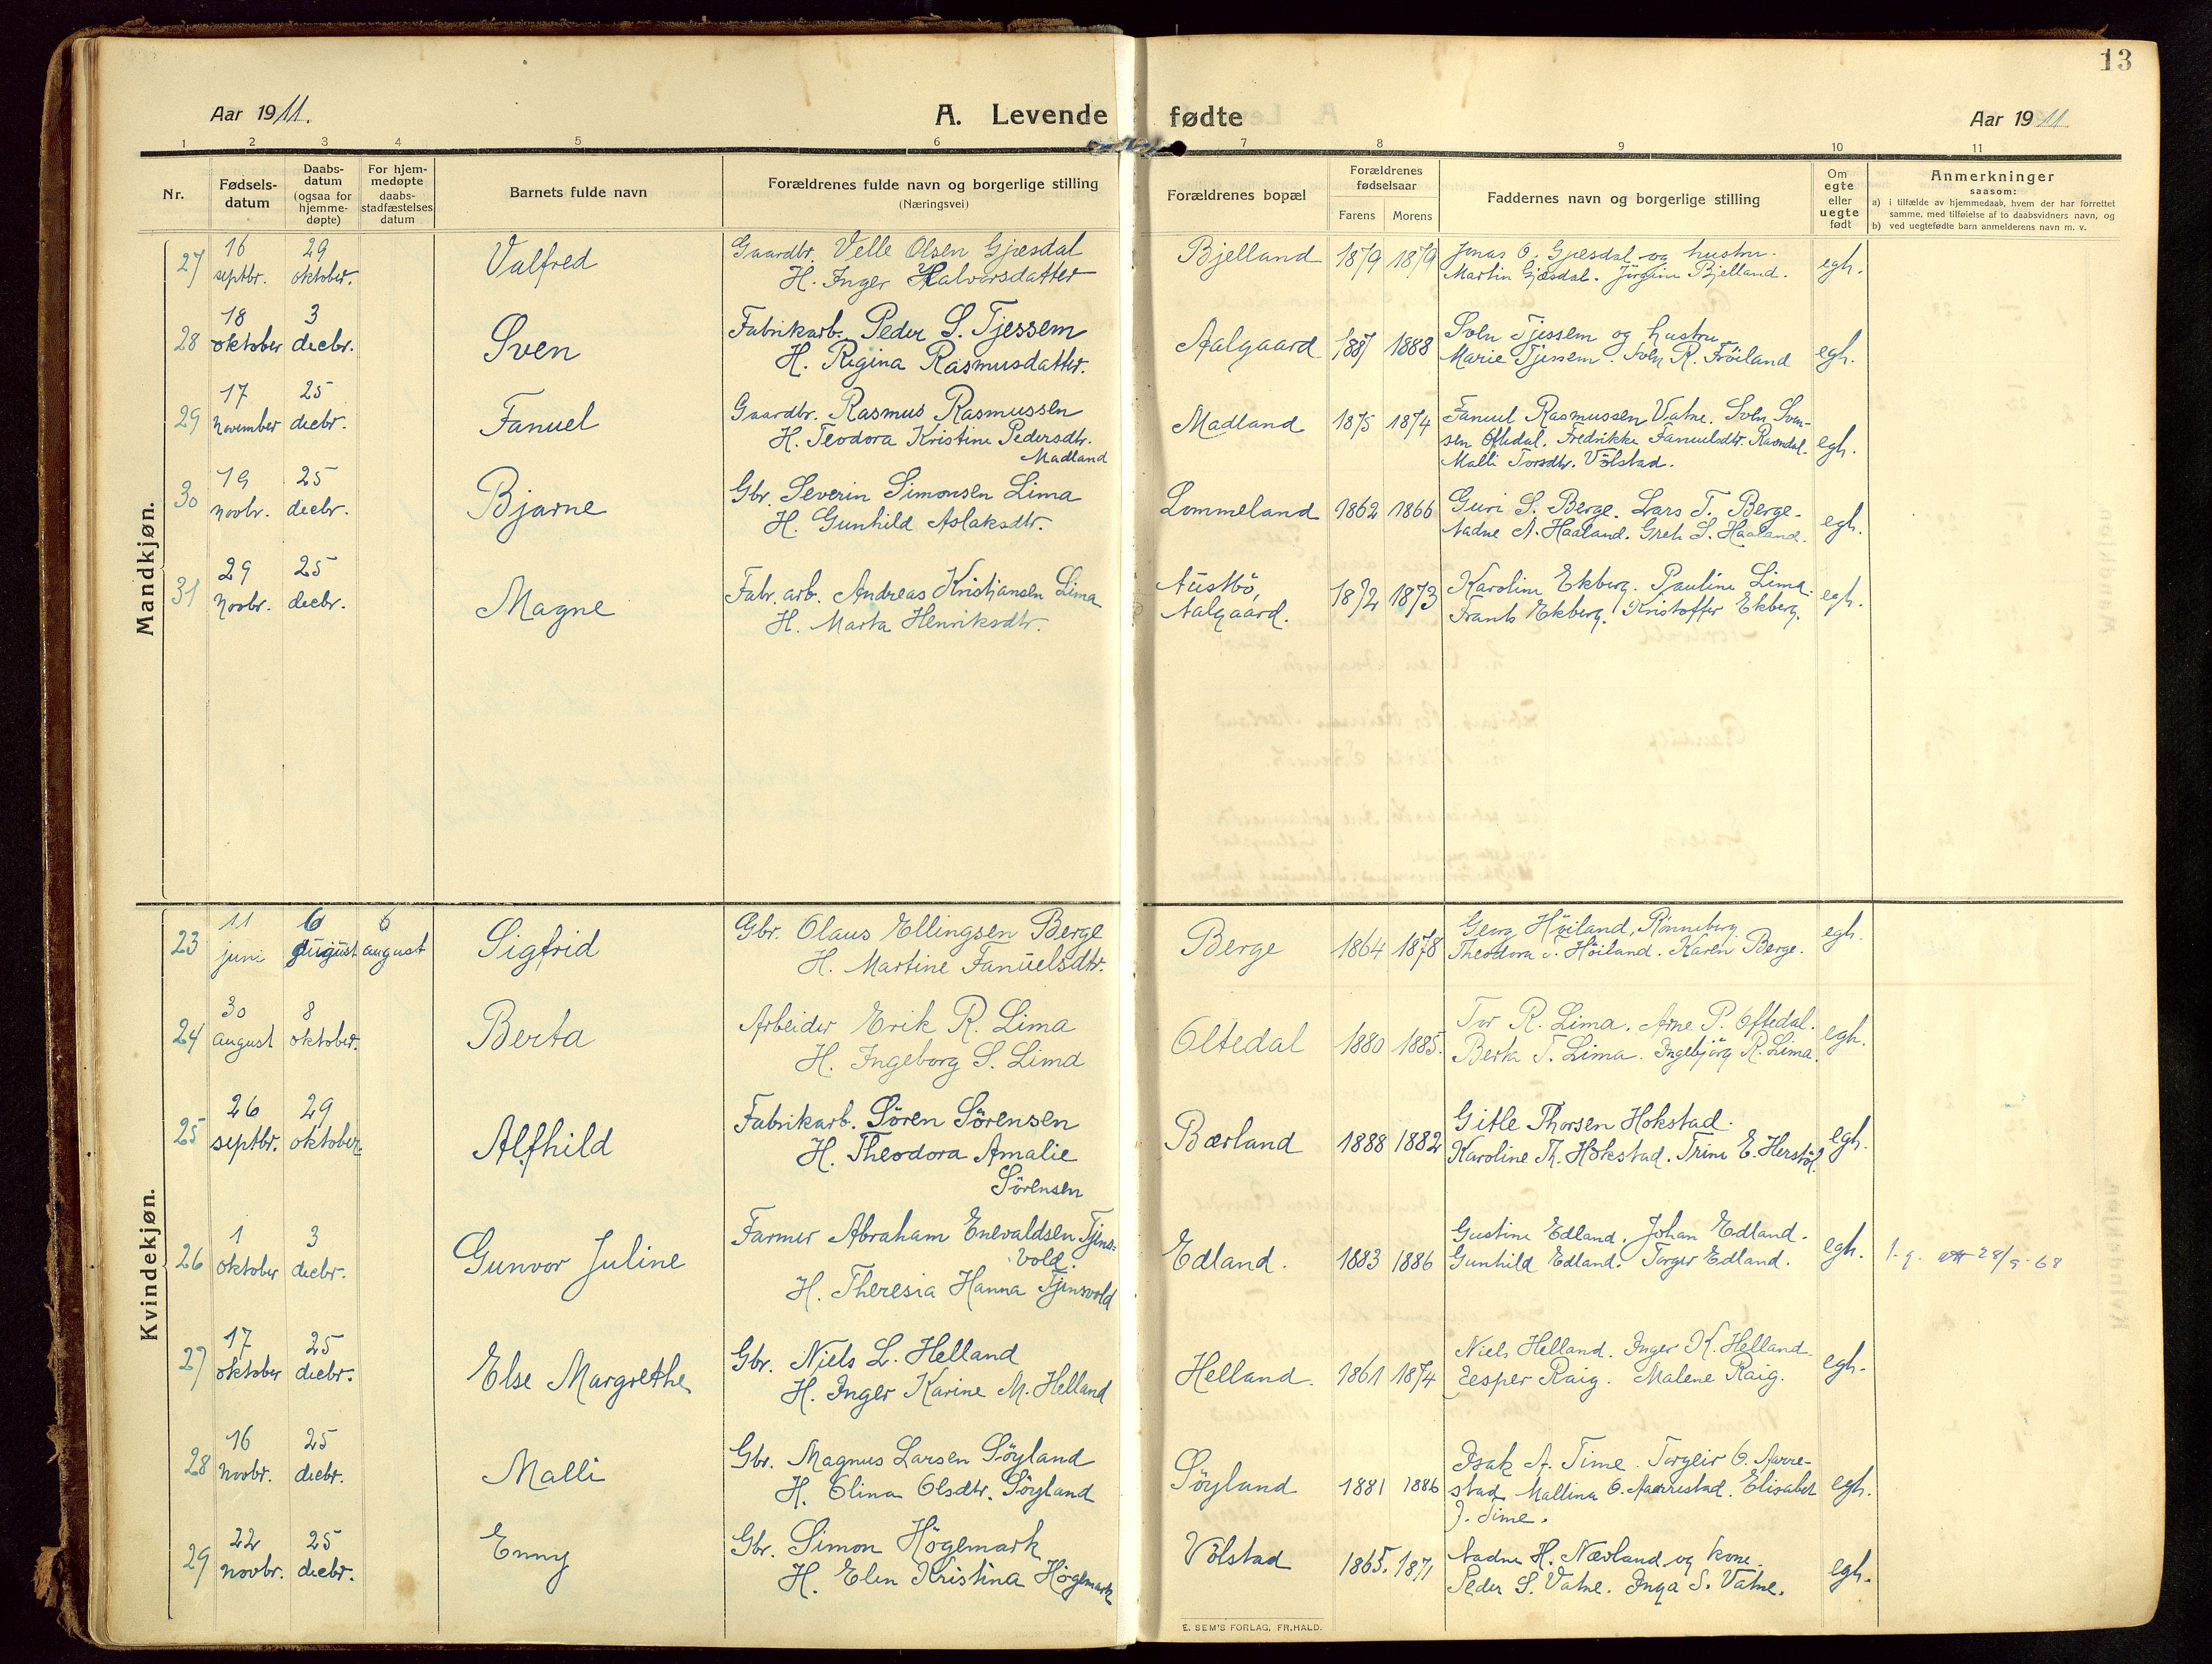 13
Aar 1911.
A. Levende fødte
Aar 1911
1 2 3 4 5 6 7 8 9 10 11
Nr.
Fødsels-
datum
Daabs-
datum
(ogsaa for
hjemme-
døpte)
For hjem-
medøpte
daabs-
stadfæstelses
datum
Barnets fulde navn
Forældrenes fulde navn og borgerlige stilling
(Næringsvei)
Forældrenes bopæl
Forældrenes
fødselsaar
Farens Morens
Faddernes navn og borgerlige stilling
Om
egte
eller
uegte
født
Anmerkninger
saasom:
a) i tilfælde av hjemmedaab, hvem der har forrettet
samme, med tilføielse af to daabsvidners navn, og
b) ved uegtefødte barn anmelderens navn m. v.
Mandkjøn.
27
16
septbr.
29
oktober.
Valfred
Gaardbr. Velle Olsen Gjæsdal
H. Inger Halvarsdatter
Bjelland
1879 1879
Jonas O. Gjesdal og hustru.
Martin Gjæsdal. Jörgine Bjelland.
egh.
28
18
oktober
3
decbr.
Sven
Fabrikarb. Peder S. Tjessem
H. Regina Rasmusdatter.
Aalgaard
1887 1888
Sven Tjessem og hustru
Marie Tjessem. Sven R. Fröiland
egh.
29
17
November
25
decbr.
Fanuel
Gaardbr. Rasmus Rasmussen
H. Teodora Kristine Pedersdtr.
Madland
Madland
1875 1874
Fanuel Rasmussen Vatne. Sven Sven-
sen Oftedal. Fredrikke Fanuelsdtr. Ravndal.
Malli Torsdtr. Völstad.
egh.
30
19
novbr.
25
decbr.
Bjarne
Gbr. Severin Simonsen Lima
H. Gunhild Aslaksdtr.
Lommeland
1862 1866
Guri S. Berge. Lars T. Berge.
Aadne A. Haaland. Greth S. Haaland.
egh.
31
29
novbr.
25
decbr.
Magne
Fabr. arb. Andreas Kristiansen Lima
H. Marta Henriksdtr.
Austbö,
Aalgaard.
1872 1873
Karoline Ekberg. Pauline Lima.
Frants Ekberg. Kristoffer Ekberg.
egh.
Kvindekjøn.
23
11
juni
6
august
6
august
Sigfrid
Gbr. Olaus Ellingsen Berge
H. Martine Fanuelsdtr.
Berge
1864 1878
Georg Höiland, Rønneberg
Theodora T. Höiland. Karen Berge.
egh.
24
30
august
8
oktober.
Berta
Arbeider Erik R. Lima
H. Ingeborg S. Lima
Oltedal
1880 1885.
Tor R. Lima. Arne P. Oftedal.
Berta T. Lima. Ingebjörg R. Lima.
egh.
25
26
septbr.
29
oktober.
Alfhild
Fabrikarb. Sören Sörensen
H. Theodora Amalie
Sörensen
Bærland
1888 1882
Gitle Thorsen Hokstad.
Karoline Th. Hokstad. Trine E. Herstöl.
egh.
26
1
oktober
3
decbr.
Gunvor Juline
Farmer Abraham Enevaldsen Tjens-
vold.
H. Theresia Hanna Tjensvold
Edland.
1883 1886
Gustine Edland. Johan Edland.
Gunhild Edland. Torger Edland.
egh.
28/9-68
27
17
oktober
25
decbr.
Else Margrethe
Gbr. Niels L. Helland
H. Inger Karine M. Helland
Helland.
1861 1874
Niels Helland. Inger K. Helland.
Jesper Raig. Malene Raig.
egh.
28
16
novbr.
25
decbr.
Malli
Gbr. Magnus Larsen Söyland
H. Olina Olsdtr. Söyland
Söyland
1881 1886
Isak A. Time. Torgeir O. Aarre-
stad Mallina O. Aarrestad. Elisabet
J. Time.
egh.
29
22
novbr.
25
decbr.
Enny
Gbr. Simon Högemark
H. Elen Kristina Högemark
Völstad
1865. 1871
Aadne H. Nævland og kone.
Peder S. Vatne. Inga S. Vatne.
egh.
E. SEM'S FORLAG, FR.HALD.